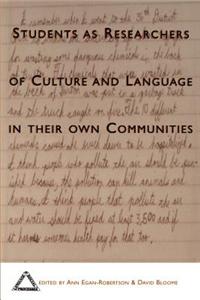 I remember when I went to the 30th District
STUDENTS AS RESEARCHERS
for some dangerous chemicals in the back
OF CULTURE AND LANGUAGE
the back of was put in a garbage truck
and the truck caught on fire. The 10 different
IN THEIR OWN COMMUNITIES
chemicals caused the truck driver to be hospitalized.
I think people who pollute the air should be pun-
ished because, the pollution can kill animals and
humans. I think people that pollute the air
and water should be fined at least 3,500 and if
it harms someones health pay for that too.
EDITED BY ANN EGAN-ROBERTSON & DAVID BLOOME